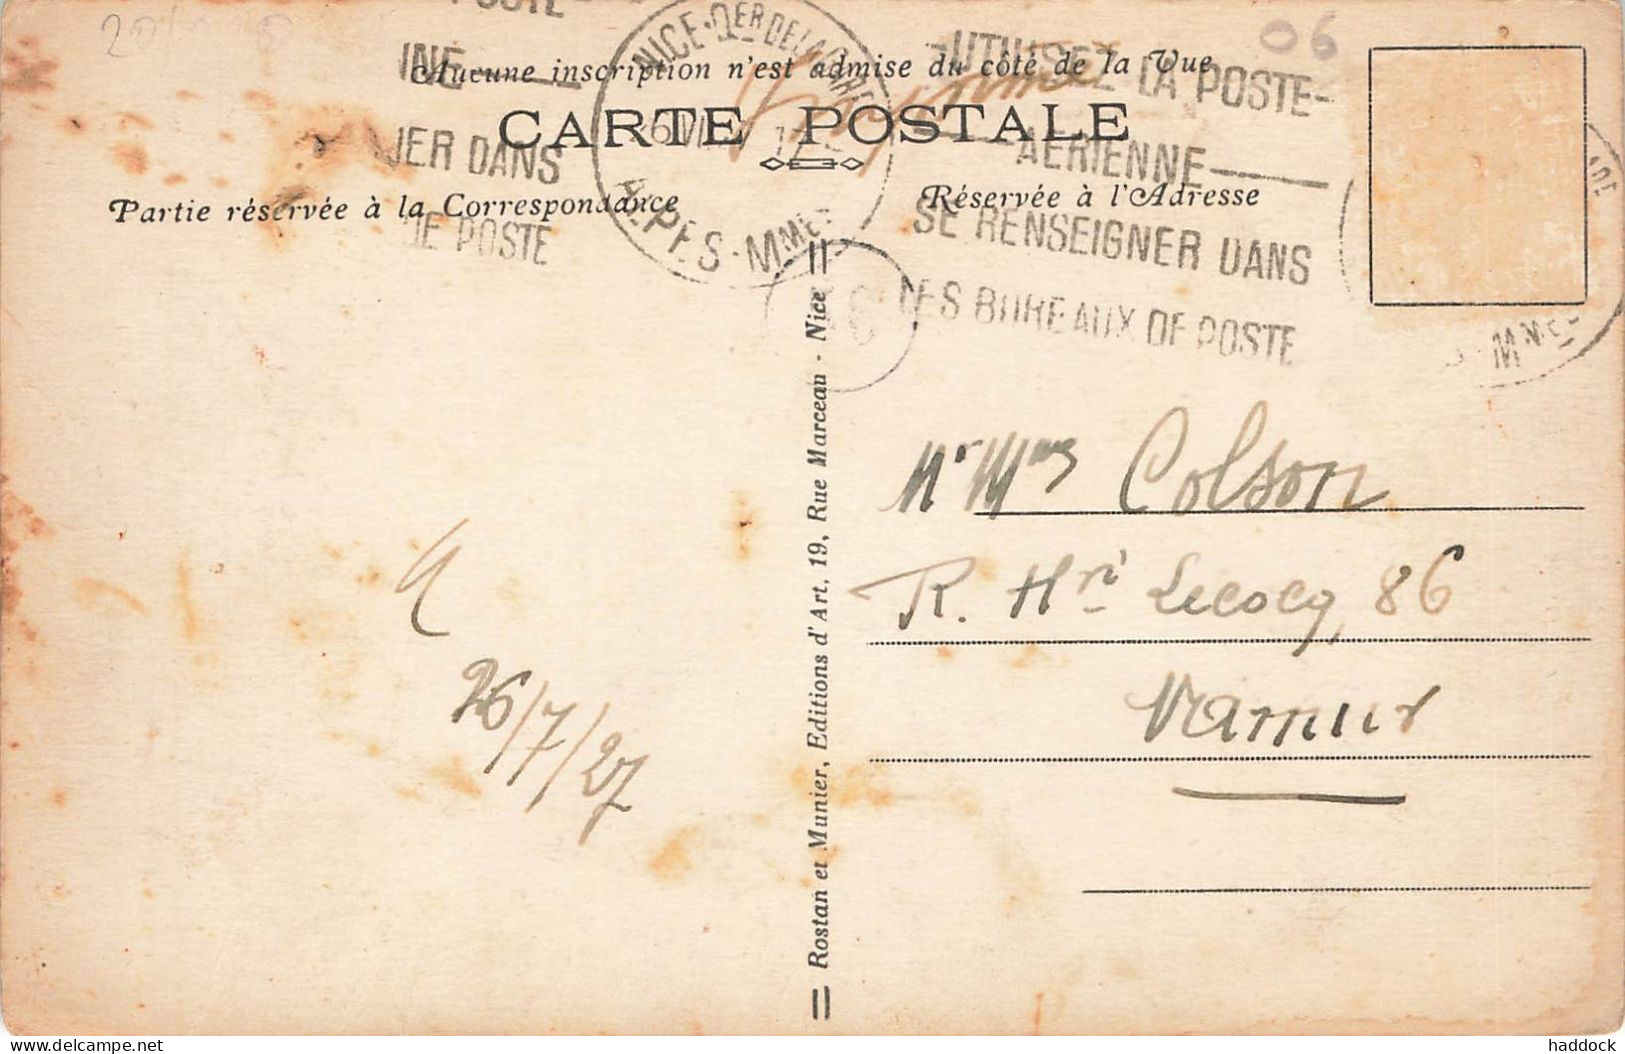 06
POSTE
INE
DANS
DE POSTE
NICE · Qer DE LA GARE
ALPES-MMES
UTILISEZ LA POSTE-
AERIENNE
SE RENSEIGNER DANS
LES BUREAUX DE POSTE
Aucune inscription n'est admise du côté de la Vue
CARTE POSTALE
Partie réservée à la Correspondance
Réservée à l'Adresse
Rostan et Munier, Editions d'Art, 19, Rue Marceau - Nice
26/7/27
Mr Mme Colson
R. Hri Lecocq, 86
Namur
haddock